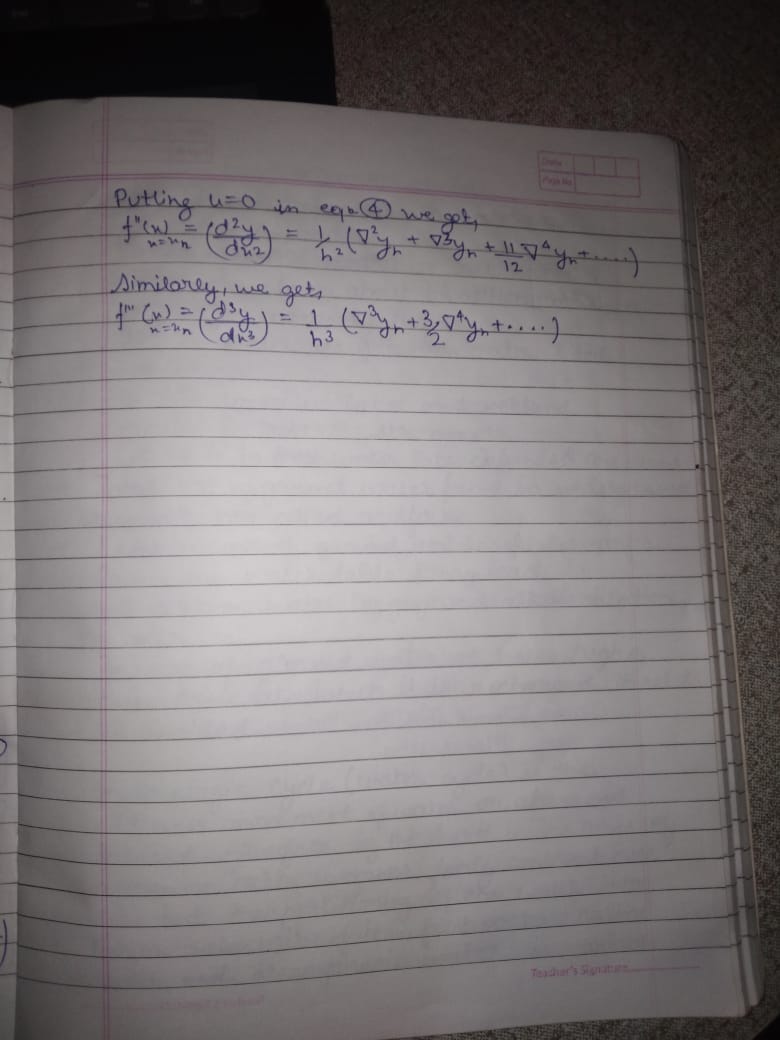 Date
Page No
Putting u=0 in eqn ④ we get,
f''(x) x=xn = (d²y/dx²) = 1/h² (∇²yn + ∇³yn + 11/12 ∇⁴yn + .....)
Similarly, we get,
f'''(x) x=xn = (d³y/dx³) = 1/h³ (∇³yn + 3/2 ∇⁴yn + ....)
Teacher's Signature